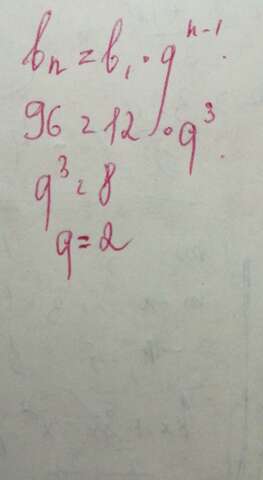 bₙ = b₁ · qⁿ⁻¹.
96 = 12 · q³.
q³ = 8
q = 2